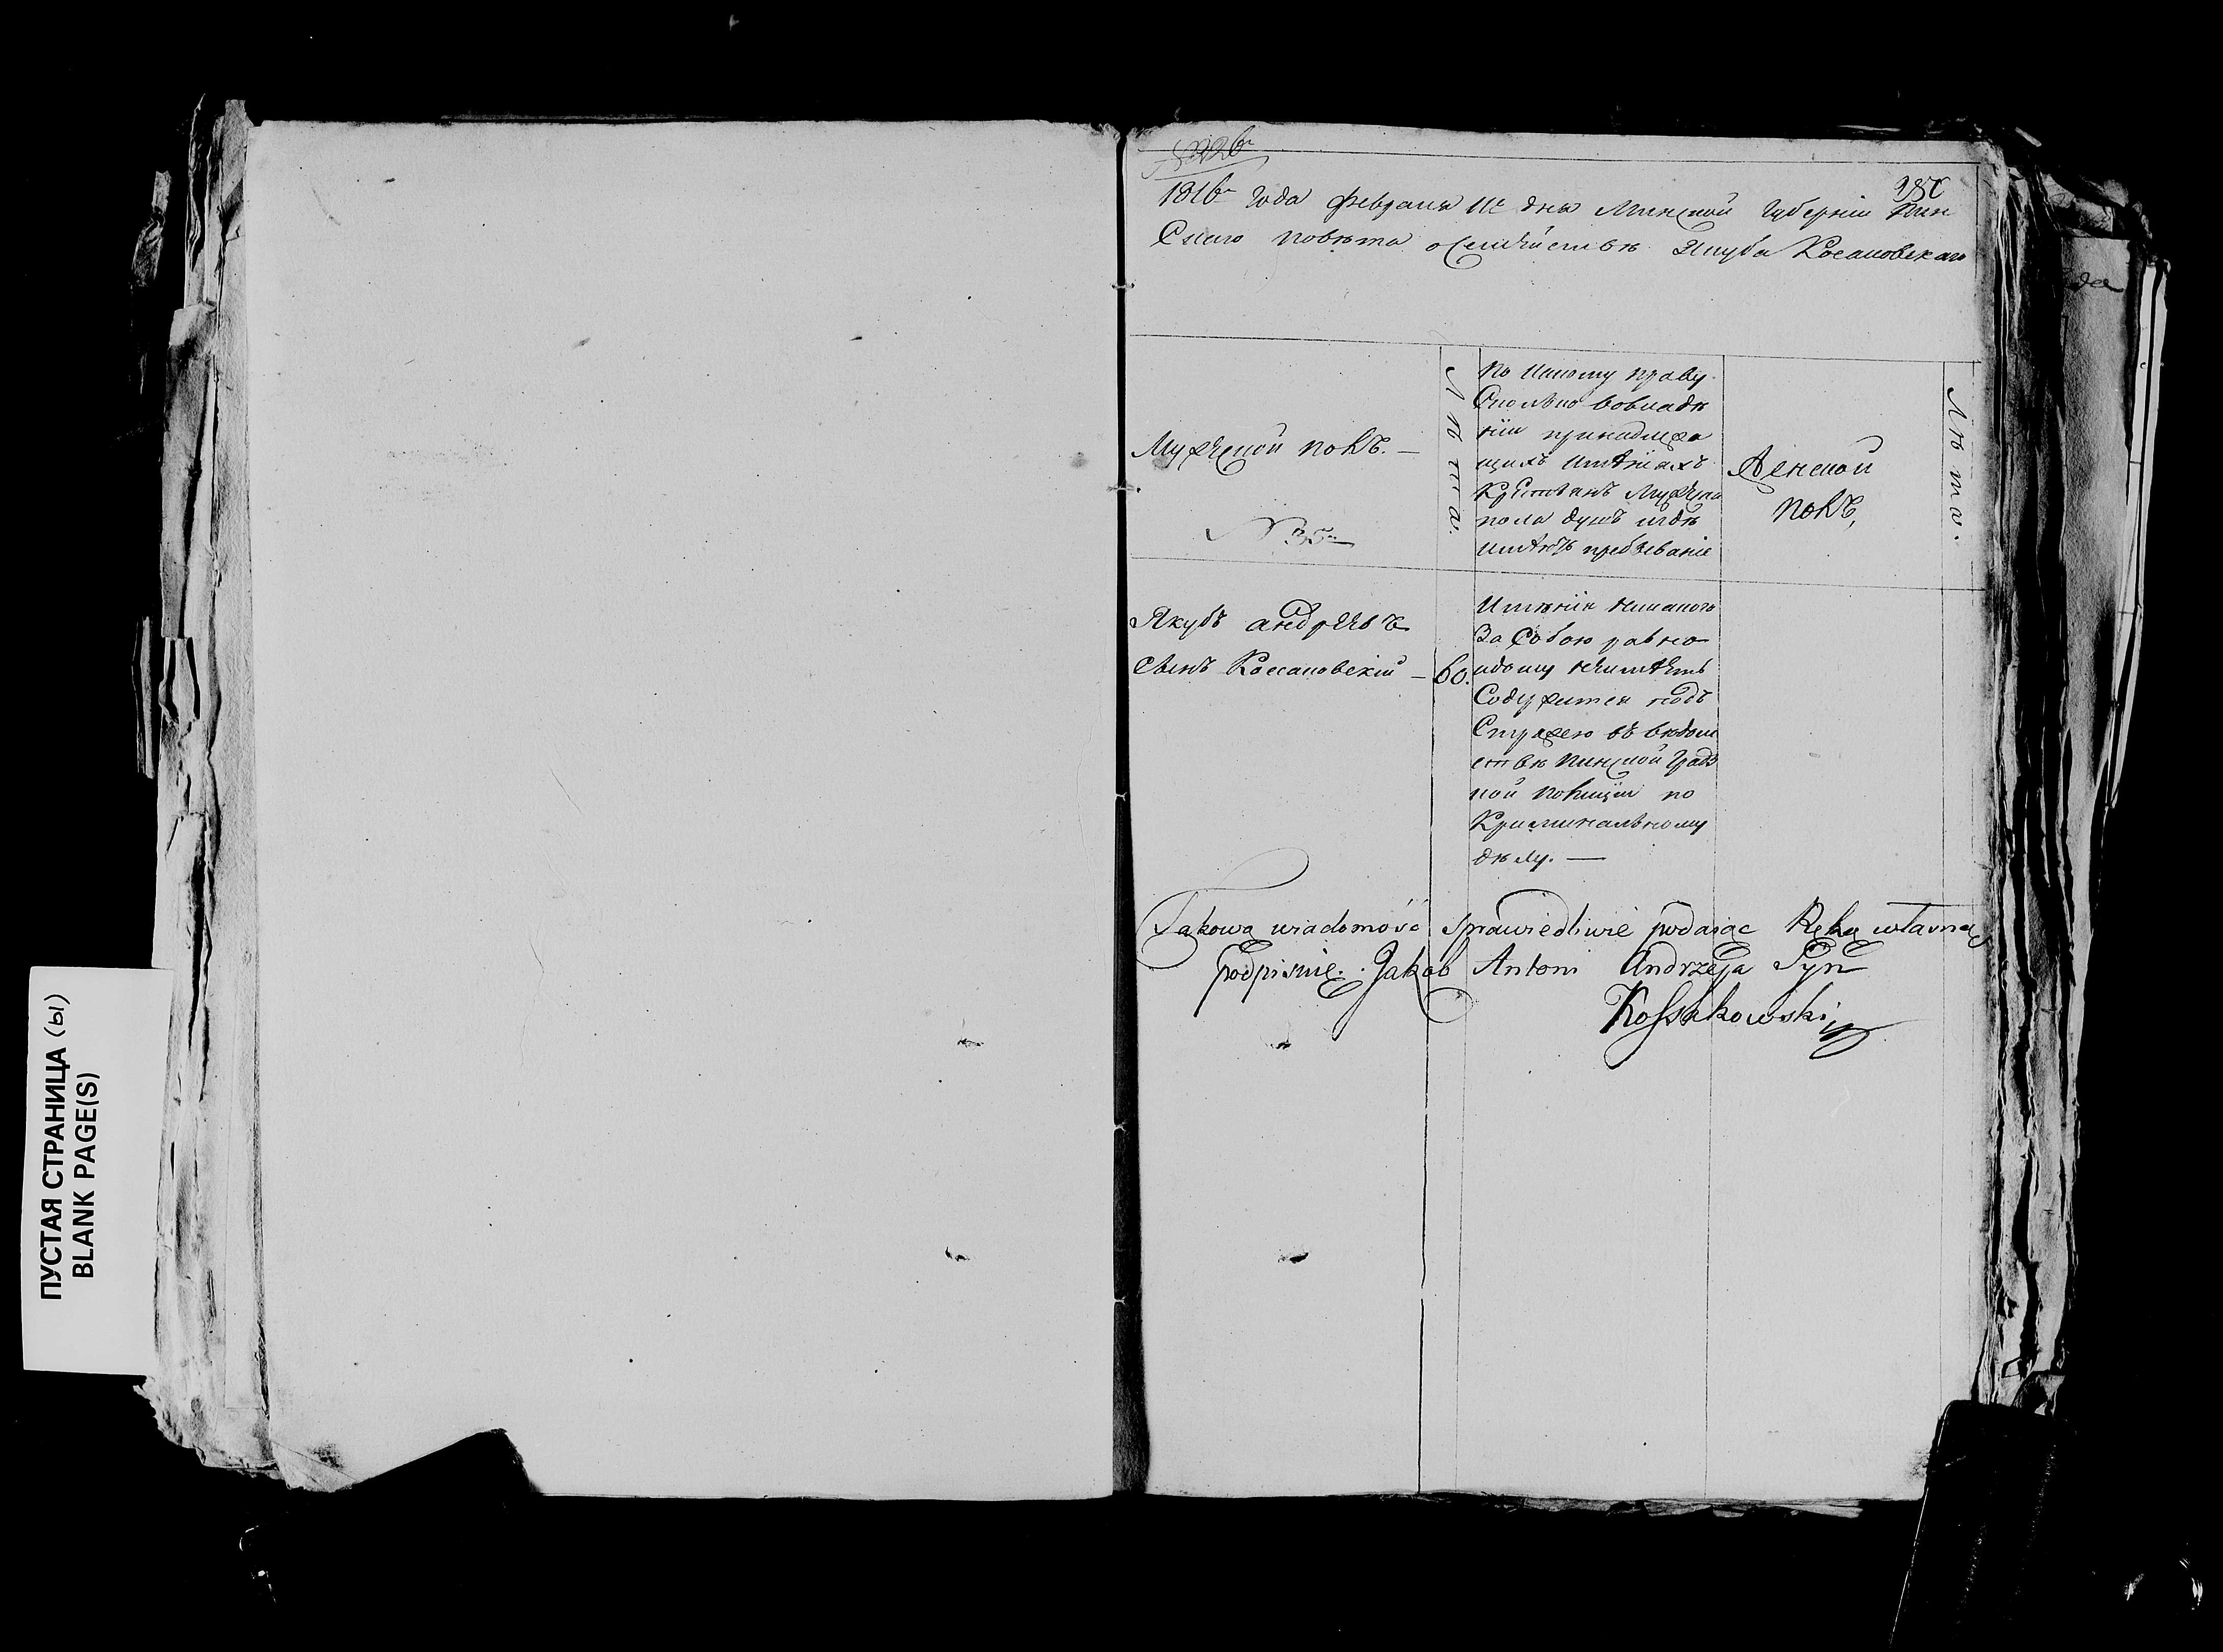 ПУСТАЯ СТРАНИЦА (ы)
BLANK PAGE(S)
1816го года февраля 11го дня Минской Губернiи Пин
Скаго повѣта о Семействѣ Якуба Косаковскаго
Мужеской полъ. —
N 35
Лѣта.
По какому праву
Сколько вовладѣ
нiи принадлежа
щихъ имѣнiахъ
Крестьянъ Мужеска
пола душъ игдѣ
имѣютъ пребыванiе
Женской
полъ,
Лѣта.
Якубъ андреевъ
Сынъ Коссаковскiй — 60.
Имѣнiя никакого
За Собою равно
и дому неимѣетъ
Содержится подъ
Стражею въ вѣдом
ствѣ пинской градз
кой полицiи по
Криминальному
дѣлу. —
Takową wiadomość sprawiedliwie podaiąc Ręką własną
podpisuię. Jakob Antoni Andrzeja Syn
Kossakowski